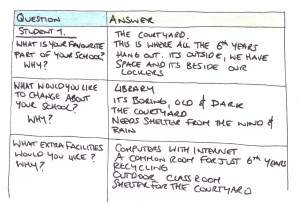 QUESTION
ANSWER
STUDENT 1.
WHAT IS YOUR FAVOURITE
PART OF YOUR SCHOOL?
WHY?
THE COURTYARD.
THIS IS WHERE ALL THE 6th YEARS
HANG OUT. IT'S OUTSIDE, WE HAVE
SPACE AND IT'S BESIDE OUR
LOCKERS
WHAT WOULD YOU LIKE
TO CHANGE ABOUT
YOUR SCHOOL?
WHY?
LIBRARY
IT'S BORING, OLD & DARK
THE COURTYARD
NEEDS SHELTER FROM THE WIND &
RAIN
WHAT EXTRA FACILITIES
WOULD YOU LIKE?
WHY?
COMPUTERS WITH INTERNET
A COMMON ROOM FOR JUST 6th YEARS
RECYCLING
OUTDOOR CLASSROOM
SHELTER FOR THE COURTYARD